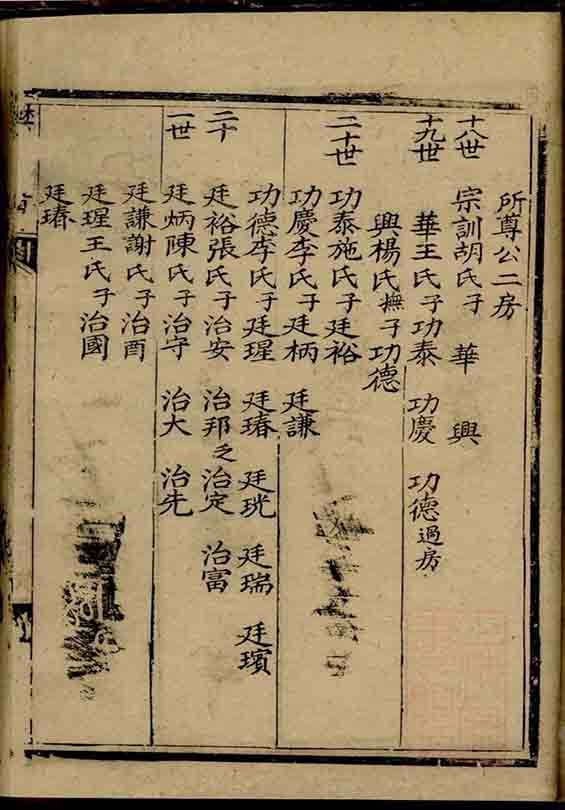 所尊公二房
十八世 宗訓胡氏子 華 興
十九世 華王氏子功泰 功慶 功德過房
興楊氏撫子功德
二十世 功泰施氏子廷裕
功慶李氏子廷柄 廷謙
功德李氏子廷瑆 廷瑃 廷珖 廷瑞 廷璸
二十一世 廷裕張氏子治安 治邦之治定 治富
廷炳陳氏子治守 治大 治先
廷謙謝氏子治酉
廷瑆王氏子治國
廷瑃